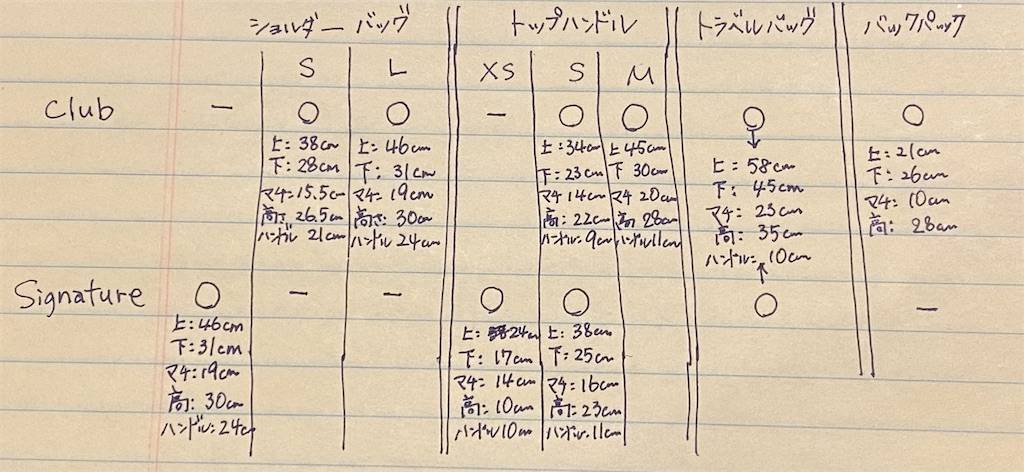 ショルダー バッグ トップハンドル トラベルバッグ バックパック
S L XS S M
Club － ○ ○ － ○ ○ ○ ○
上: 38cm 上: 46cm 上: 34cm 上 45cm 上: 58cm 上: 21cm
下: 28cm 下: 31cm 下: 23cm 下 30cm 下: 45cm 下: 26cm
マチ: 15.5cm マチ: 19cm マチ 14cm マチ 20cm マチ: 23cm マチ: 10cm
高さ: 26.5cm 高さ: 30cm 高: 22cm 高: 28cm 高: 35cm 高: 28cm
ハンドル 21cm ハンドル 24cm ハンドル: 9cm ハンドル 11cm ハンドル: 10cm
Signature ○ － － ○ ○ ○ －
上: 46cm 上: 24cm 上: 38cm
下: 31cm 下: 17cm 下: 25cm
マチ: 19cm マチ: 14cm マチ: 16cm
高: 30cm 高: 10cm 高: 23cm
ハンドル: 24c ハンドル 10cm ハンドル: 11cm